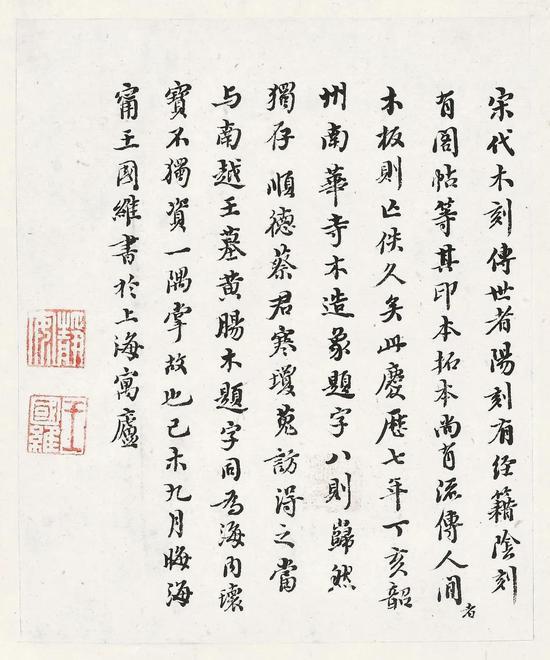 宋代木刻傳世者陽刻有經籍陰刻
有閣帖等其印本拓本尚有流傳人間者
木板則亡佚久矣此慶歷七年丁亥韶
州南華寺木造象題字八則巋然
獨存順德蔡君寒瓊蒐訪得之當
与南越王墓黃腸木題字同為海內瓌
寶不獨資一隅掌故也己未九月晦海
甯王國維書於上海寓廬
靜安
王國維